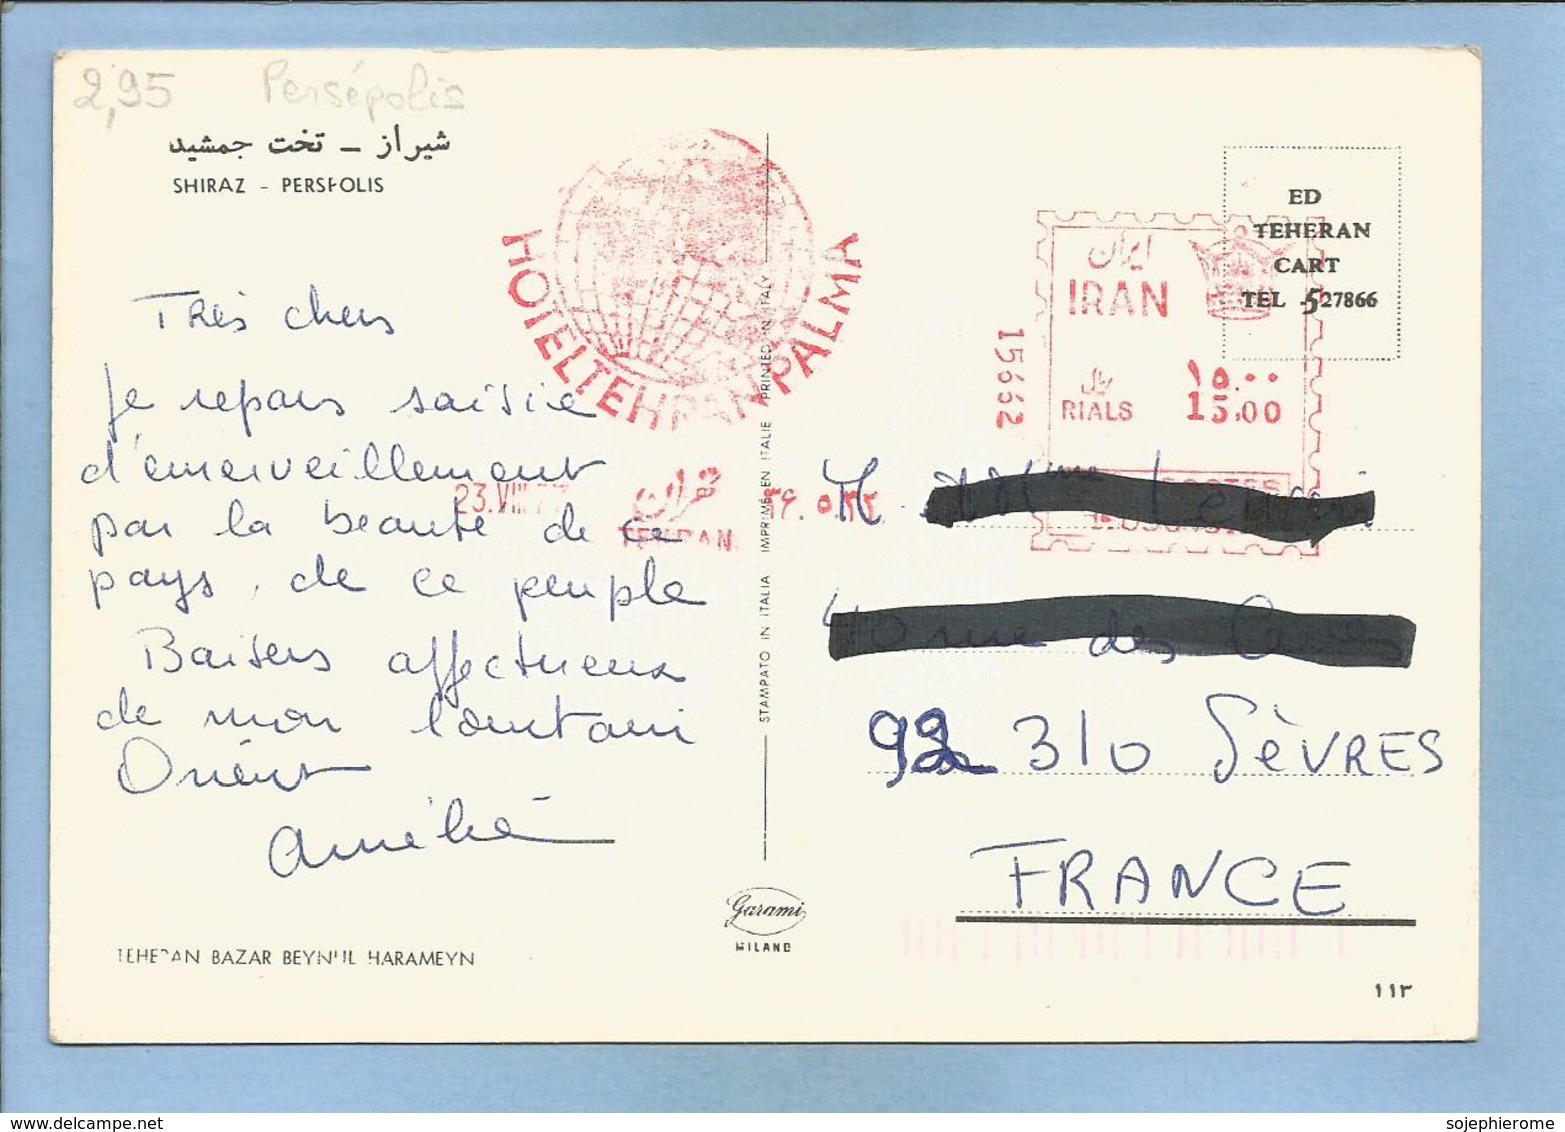 2,95 Persépolis
شیراز – تخت جمشید
SHIRAZ - PERSEPOLIS
Très chers
Je repars saisie
d'émerveillement
par la beauté de ce
pays, de ce peuple
Baisers affectueux
de mon lointain
Orient
Amélie
TEHERAN BAZAR BEYNUL HARAMEYN
HOTEL TEHRAN PALMA
23.VIII
تهران
TEHRAN
STAMPATO IN ITALIA IMPRIMÉ EN ITALIE PRINTED IN ITALY
Garami
MILANO
15662
ایران
IRAN
ریال
RIALS
۱۵.۰۰
15.00
POSTES
ED
TEHERAN
CART
TEL 527866
M
rue des
92 310 SÈVRES
FRANCE
۱۱۳
sojephierome